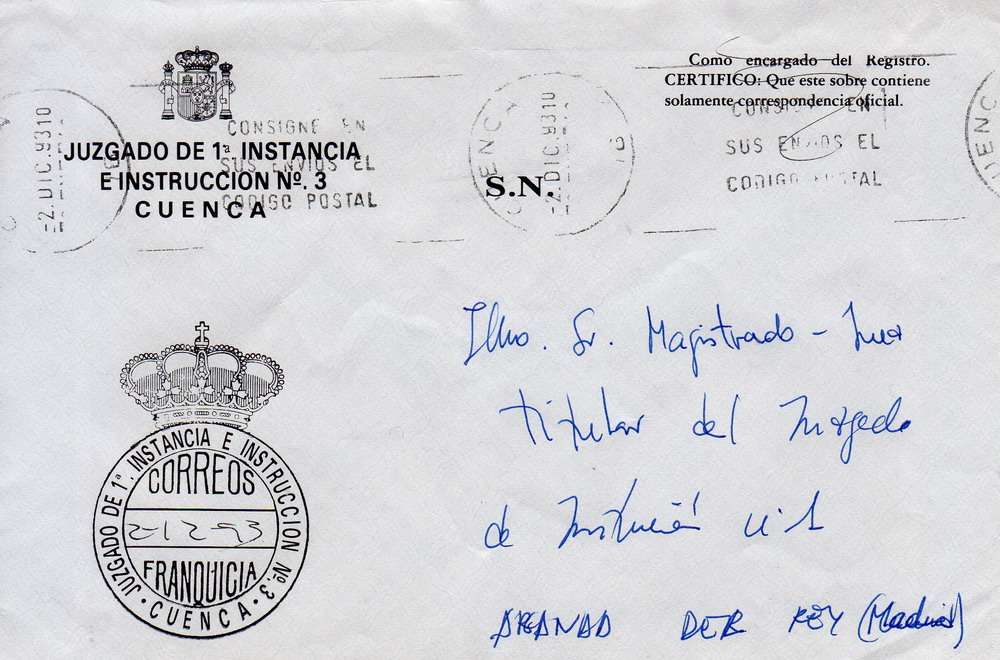 JUZGADO DE 1ª INSTANCIA
E INSTRUCCION Nº. 3
CUENCA
CONSIGNE EN
SUS ENVIOS EL
CODIGO POSTAL
-2.DIC.9310
CUENCA
-2.DIC.9310
S.N.
Como encargado del Registro.
CERTIFICO: Que este sobre contiene
solamente correspondencia oficial.
CONSIGNE EN
SUS ENVIOS EL
CODIGO POSTAL
JUZGADO DE 1ª. INSTANCIA E INSTRUCCION Nº. 3
CORREOS
2-12-93
FRANQUICIA
CUENCA
Ilmo. Sr. Magistrado - Juez
Titular del Juzgado
de Instrucción nº 1
ARGANDA DEL REY (Madrid)